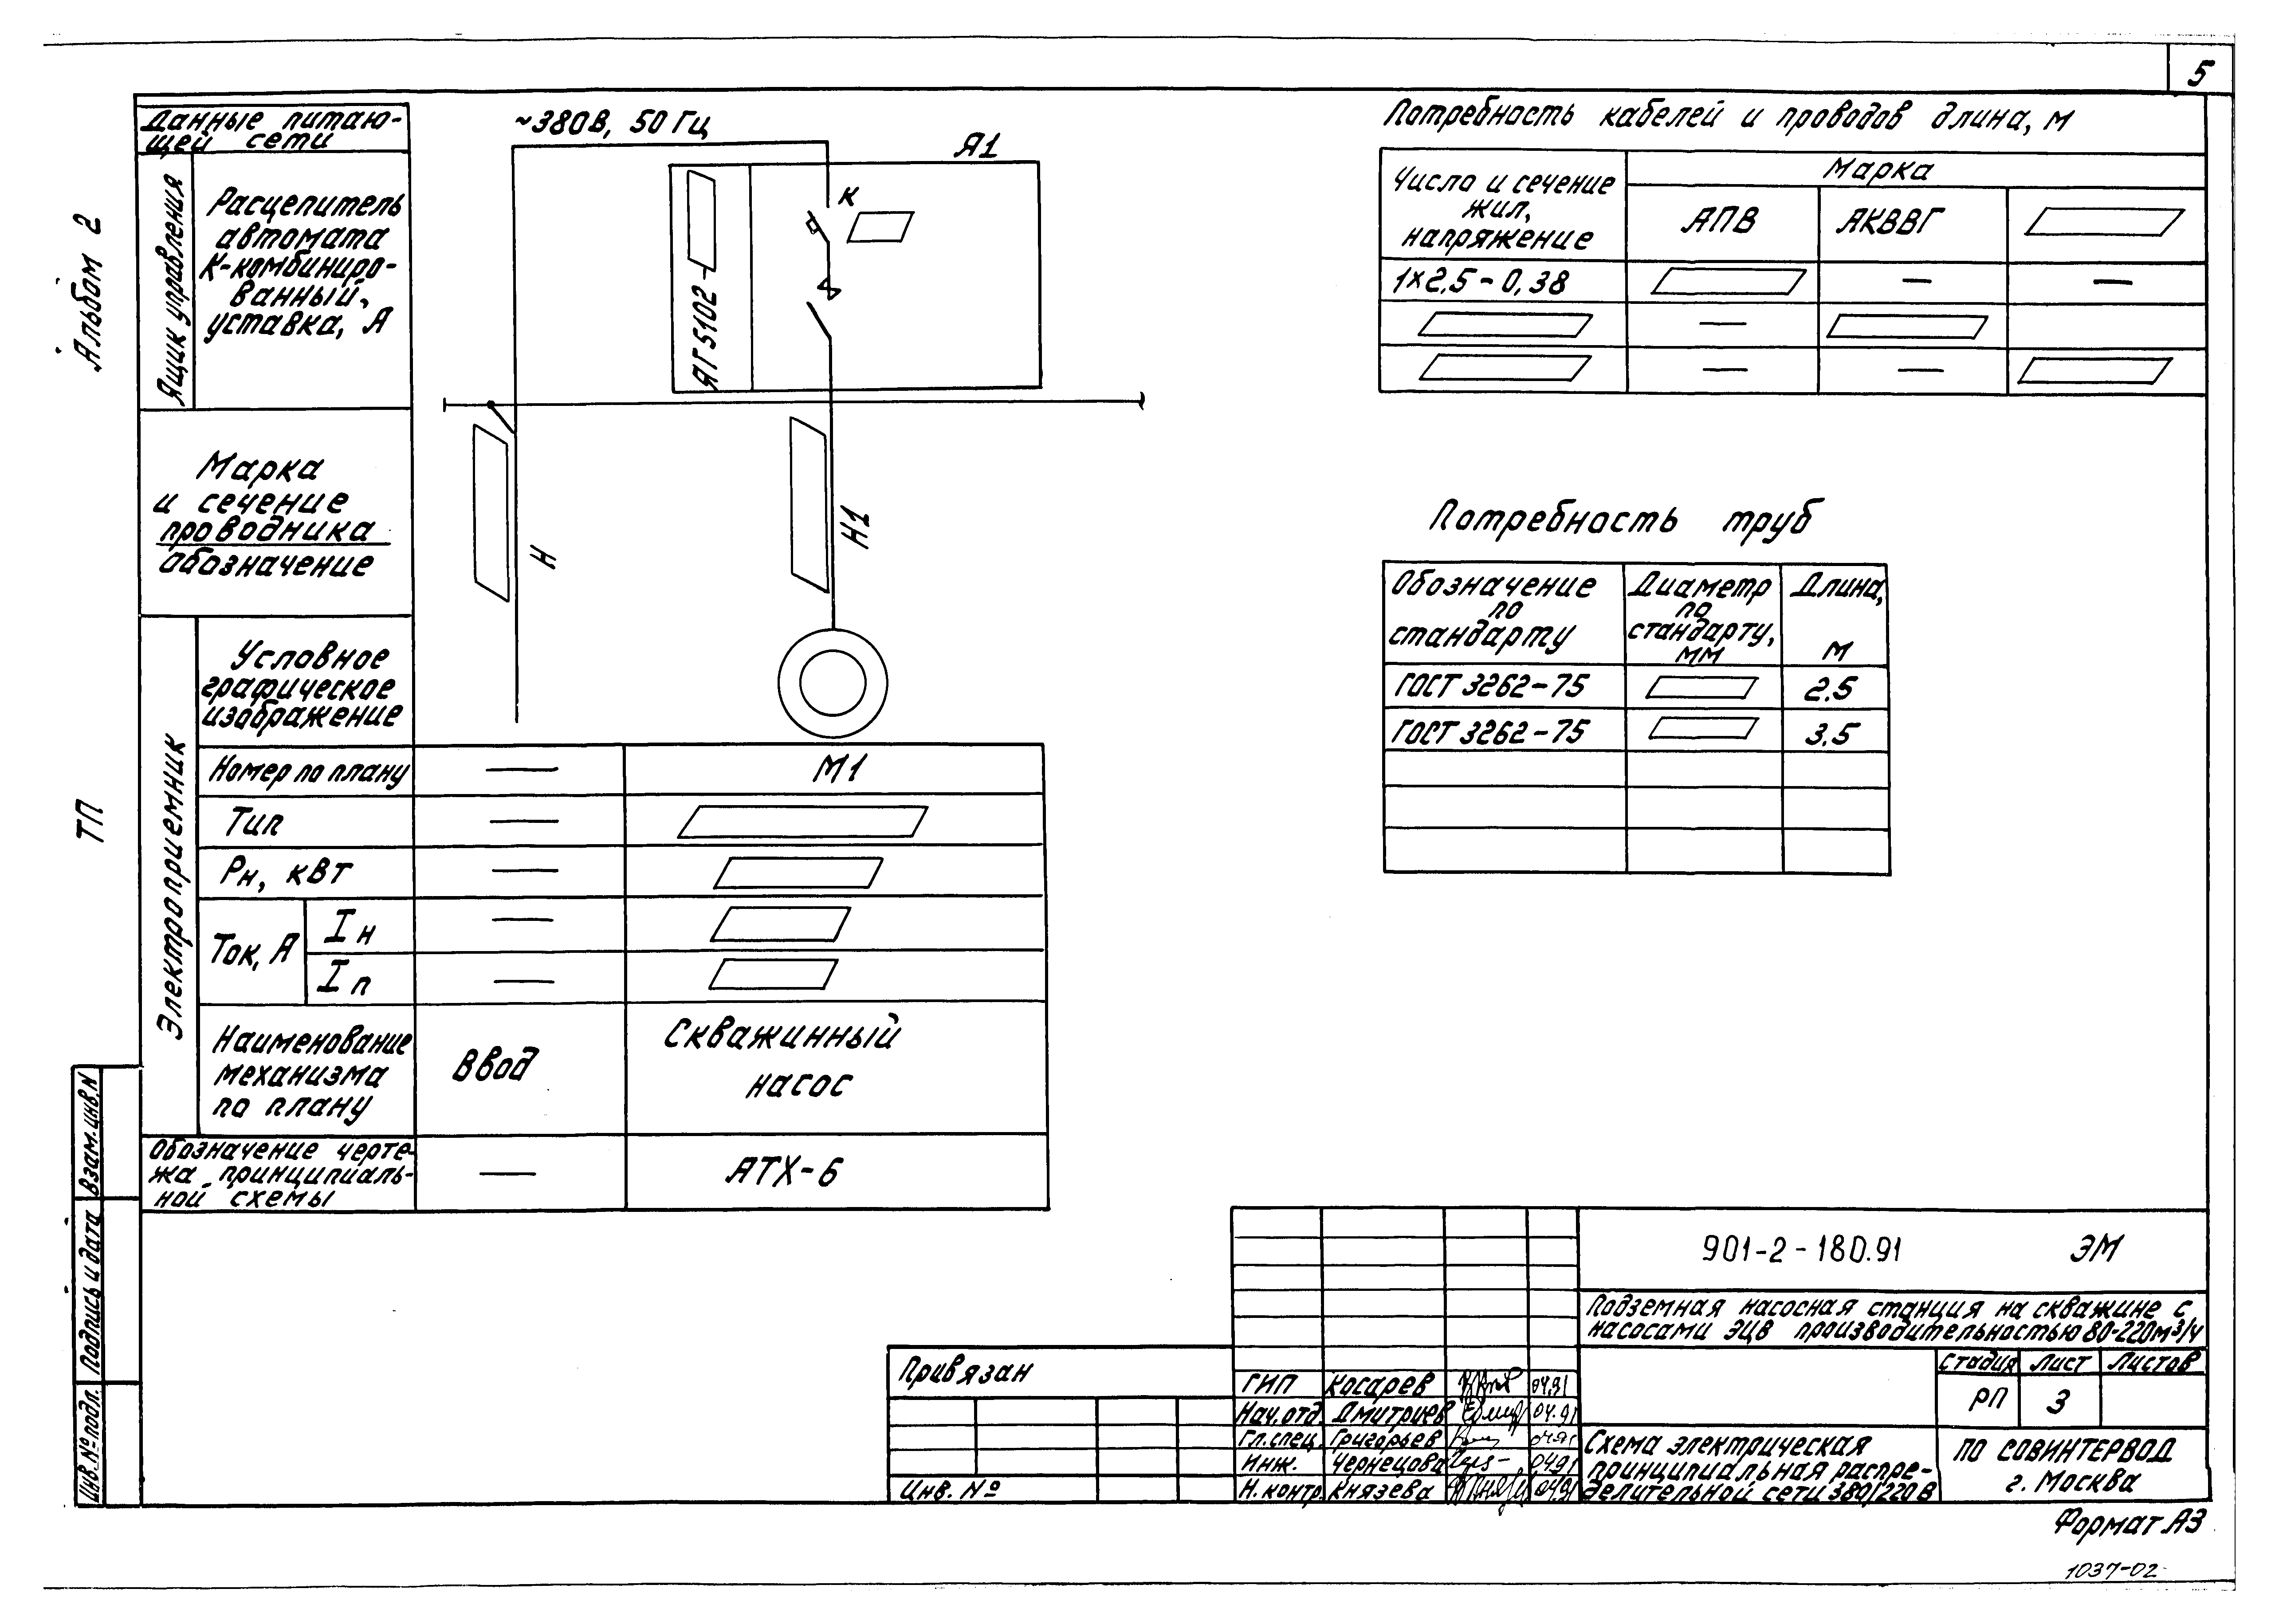 5
Альбом 2
ТП
Данные питаю-
щей сети
Ящик управления
Расцепитель
автомата
К-комбиниро-
ванный,
уставка, А
Марка
и сечение
проводника
обозначение
Электроприемник
Условное
графическое
изображение
~380В, 50 Гц
Я1
К
ЯГ5102-
Н
Н1
Номер по плану — М1
Тип —
Рн, кВт —
Ток, А
Iн —
Iп —
Наименование
механизма
по плану
Ввод
Скважинный
насос
Обозначение черте-
жа принципиаль-
ной схемы
— АТХ-6
Потребность кабелей и проводов длина, м
Число и сечение
жил,
напряжение
Марка
АПВ АКВВГ
1×2,5-0,38 — —
—
— —
Потребность труб
Обозначение
по
стандарту
Диаметр
по
стандарту,
мм
Длина,
м
ГОСТ 3262-75 2.5
ГОСТ 3262-75 3.5
Взам. инв. N
Подпись и дата
Инв. № подл.
Привязан
Инв. №
ГИП Косарев 04.91
Нач. отд. Дмитриев 04.91
Гл. спец. Григорьев 04.91
Инж. Чернецова 04.91
Н. контр. Князева 04.91
901-2-180.91 ЭМ
Подземная насосная станция на скважине с
насосами ЭЦВ производительностью 80-220м³/ч
Стадия Лист Листов
РП 3
Схема электрическая
принципиальная распре-
делительной сети 380/220 В
ПО СОВИНТЕРВОД
г. Москва
Формат А3
1037-02